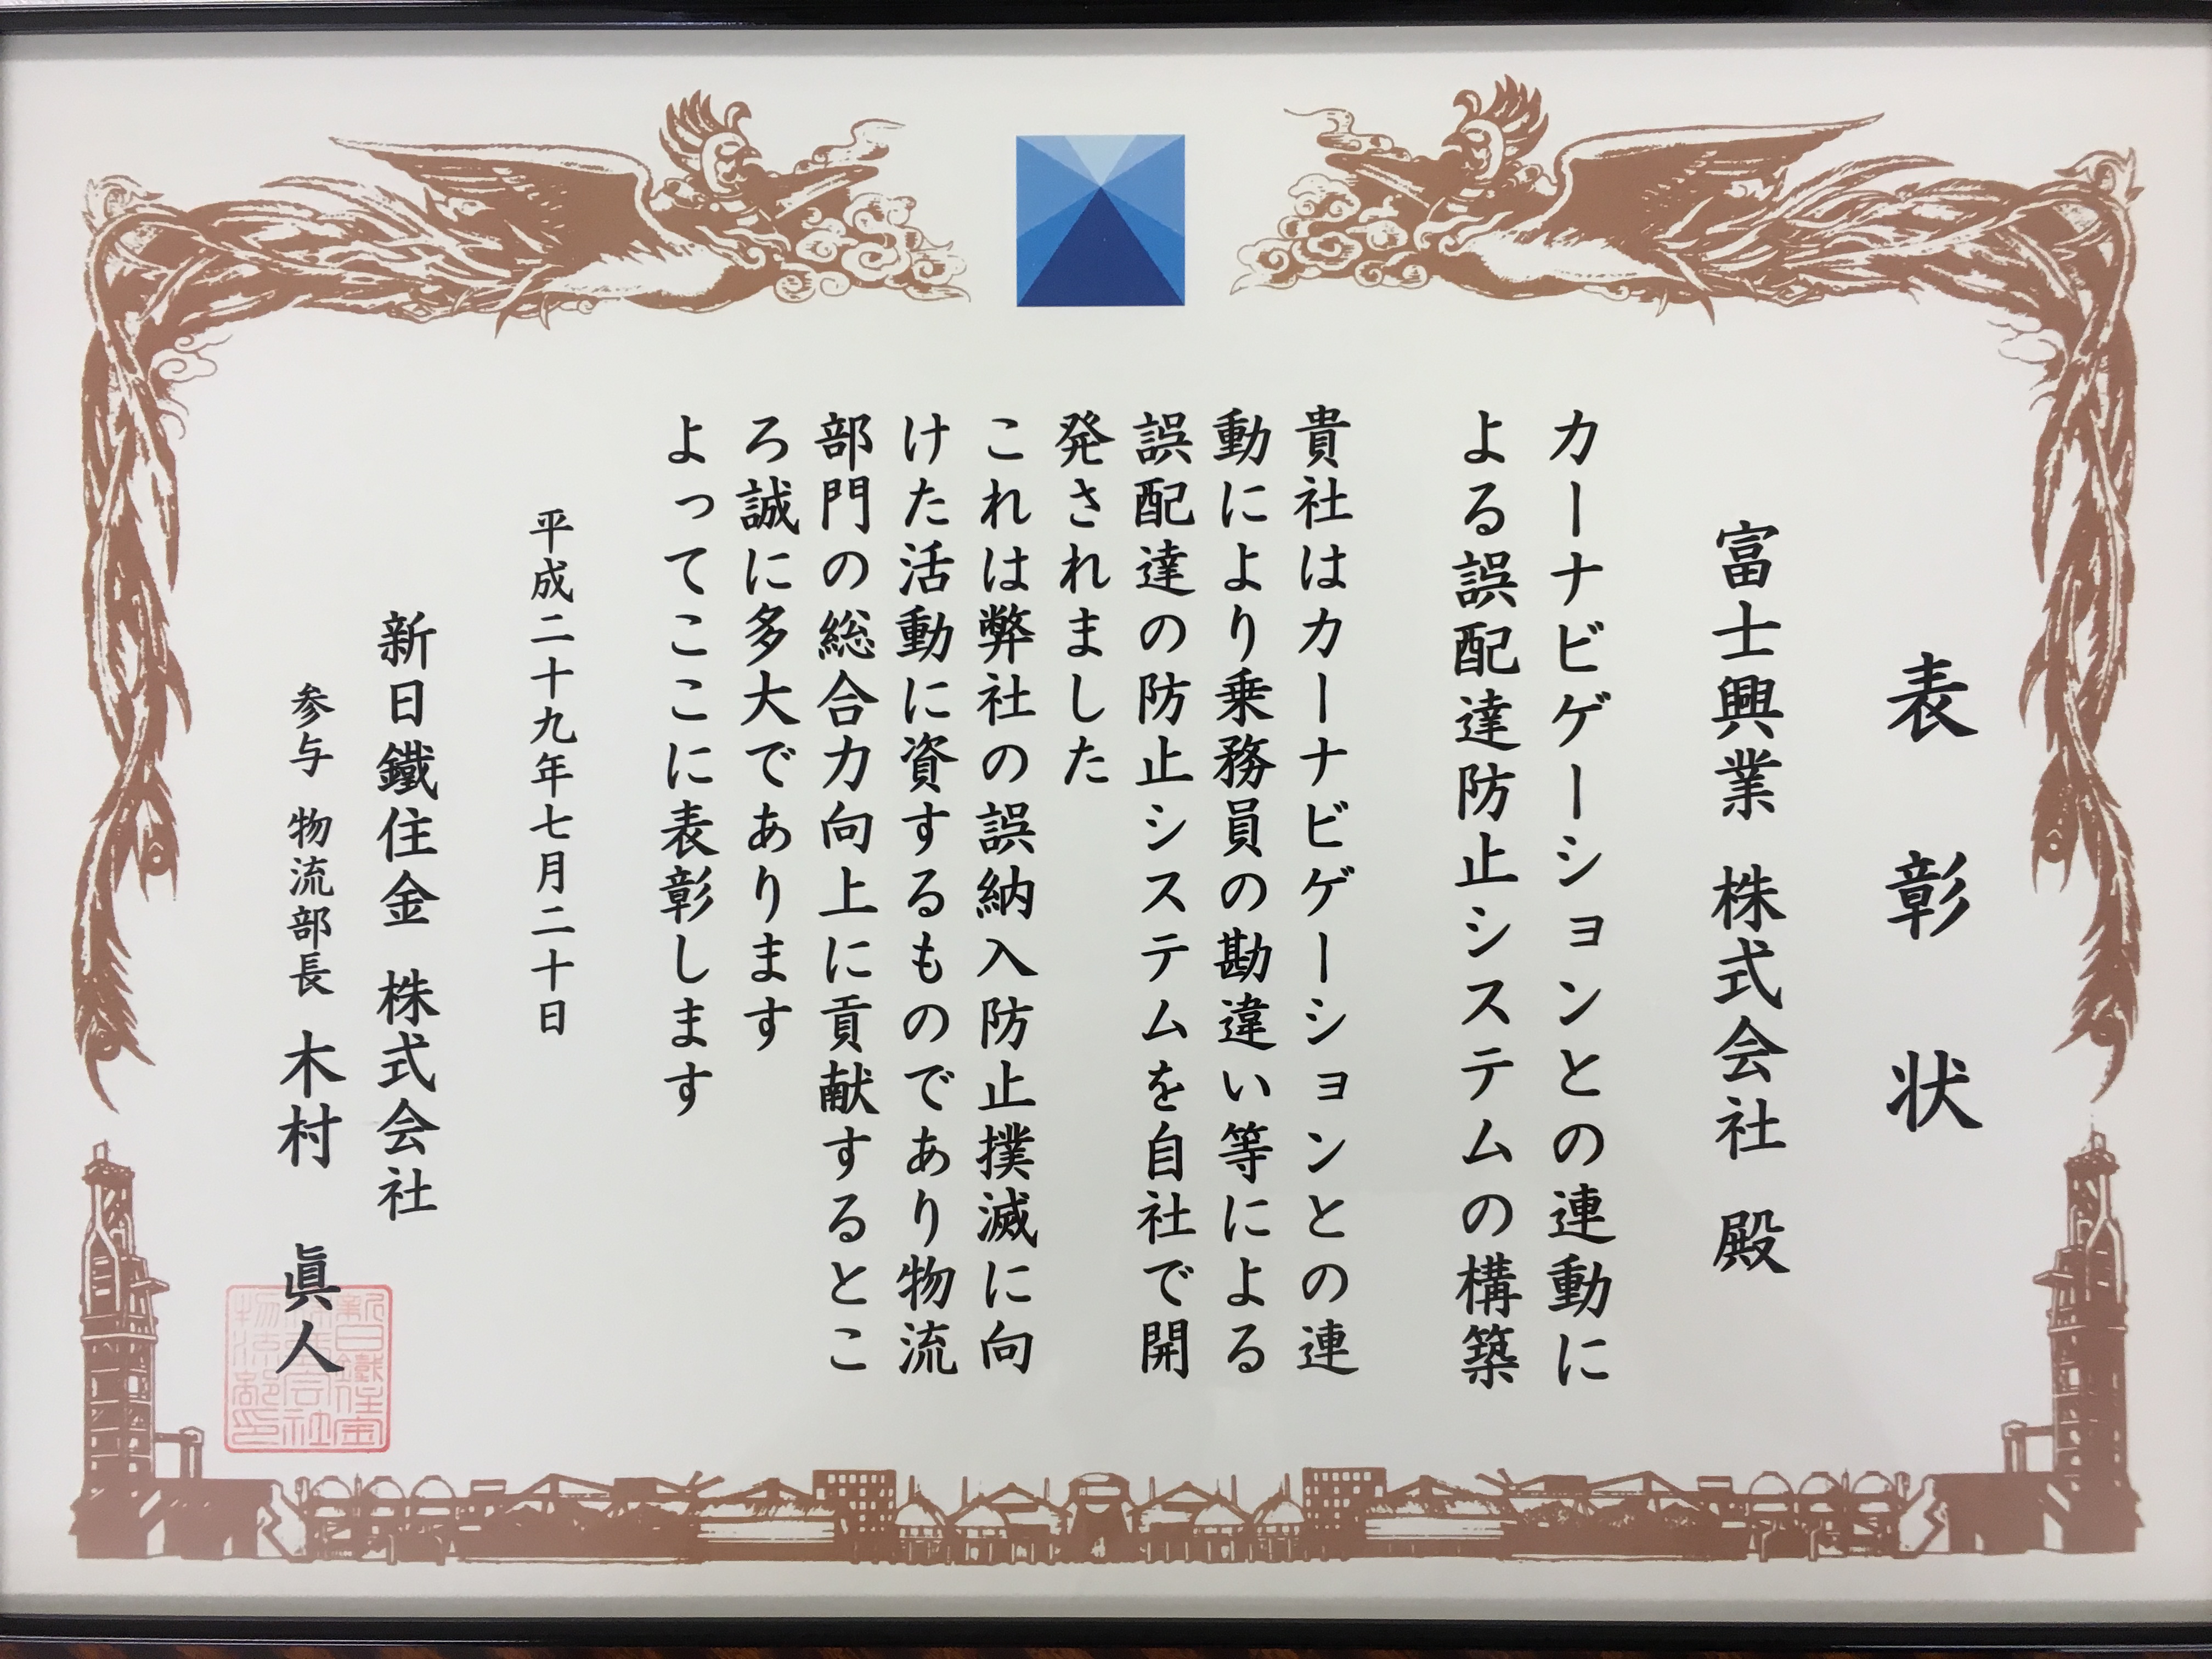 表彰状
富士興業 株式会社 殿
カーナビゲーションとの連動に
よる誤配達防止システムの構築
貴社はカーナビゲーションとの連
動により乗務員の勘違い等による
誤配達の防止システムを自社で開
発されました
これは弊社の誤納入防止撲滅に向
けた活動に資するものであり物流
部門の総合力向上に貢献するとこ
ろ誠に多大であります
よってここに表彰します
平成二十九年七月二十日
新日鐵住金 株式会社
参与 物流部長 木村 眞人
新日鐵住金
株式会社
物流部印